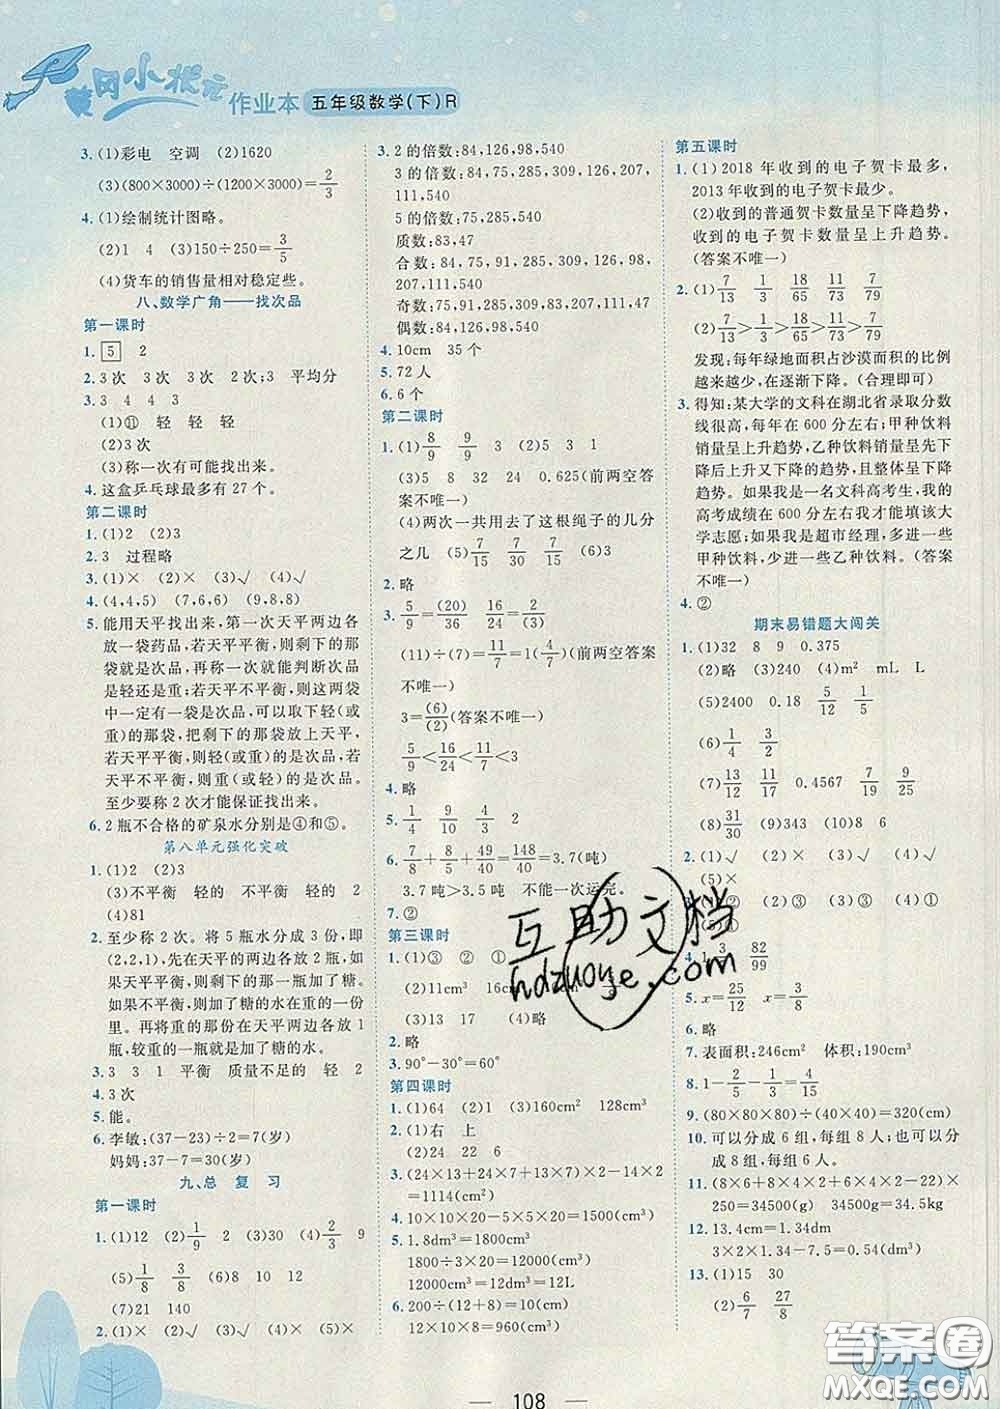 黄冈小状元 作业本 五年级数学(下)R
3.(1)彩电 空调 (2)1620
(3)(800×3000)÷(1200×3000)=2/3
4.(1)绘制统计图略。
(2)1 4 (3)150÷250=3/5
(4)货车的销售量相对稳定些。
八、数学广角——找次品
第一课时
1. 5 2
2.3次 3次 3次 2次;3 平均分
3.3 4 4 3
(1)⑪ 轻 轻 轻
(2)3次
(3)称一次有可能找出来。
4.这盒乒乓球最多有27个。
第二课时
1.(1)2 (2)3
2.3 过程略
3.(1)× (2)× (3)√ (4)√
4.(4,4,5) (7,6,6) (9,8,8)
5.能用天平找出来。第一次天平两边各
放一袋药品,若天平平衡,则剩下的那
袋就是次品,再称一次就能判断次品
是轻还是重;若天平不平衡,则这两袋
中一定有一袋是次品,可以取下轻(或
重)的那袋,把剩下的一袋放上天平,
若天平平衡,则轻(或重)的是次品,若
天平不平衡,则重(或轻)的是次品。
至少要称2次才能保证找出来。
6.2瓶不合格的矿泉水分别是④和⑤。
第八单元强化突破
1.(1)2 (2)3
(3)不平衡 轻的 不平衡 轻的 2
(4)81
2.至少称2次。将5瓶水分成3份,即
(2,2,1),先在天平两边各放2瓶,
如果天平平衡,则剩下的1瓶加了糖;
如果不平衡,则加了糖的水在重的一份
里。再将重的那份在天平两边各放1
瓶,较重的一瓶就是加了糖的水。
3.3 3 1 平衡 质量不足的 轻 2
4.3次
5.能。
6.李敏:(37-23)÷2=7(岁)
妈妈:37-7=30(岁)
九、总复习
第一课时
1.(1)12 (2)1/9 2 (3)30 (4)2/3 9
(5)1/8 3/8 (6)2/9
(7)21 140
2.(1)× (2)√ (3)√ (4)× (5)×
3.2的倍数:84,126,98,540
3的倍数:84,75,285,309,126,207,
111,540
5的倍数:75,285,540
质数:83,47
合数:84,75,91,285,309,126,207,
98,111,540
奇数:75,91,285,309,83,47,207,111
偶数:84,126,98,540
4.10cm 35个
5.72人
6.6个
第二课时
1.(1)8/9 9/9 3 (2)5 3 1
(3)5 8 32 24 0.625(前两空答
案不唯一)
(4)两次一共用去了这根绳子的几分
之几 (5)7/15 7/15 (6)3
2.略
3.5/9=(20)/36 16/24=2/(3)
(11)÷(7)=11/7=1(4/7)(前两空答案
不唯一)
3=(6)/(2)(答案不唯一)
5/9<16/24<11/7<3
4.略
5.1/4 9/10 4/9 2
6.7/8+5/8+49/40=148/40=3.7(吨)
3.7吨>3.5吨 不能一次运完。
7.②
第三课时
1.(1)③ ② ①
(2)11cm³
(3)13 17 (4)略
2.略
3.90°-30°=60°
第四课时
1.(1)64 (2)1 (3)160cm² 128cm³
2.(1)右 上
(2)24 22 6
3.(24×13+24×7+13×7)×2-24×2
=1114(cm²)
4.10×10×20-5×5×20=1500(cm³)
5.1.8dm³=1800cm³
1800÷12×80=12000(cm³)
12000cm³=12dm³=12L
6.200÷(12+8)=10(cm)
12×10×8=960(cm³)
第五课时
1.(1)2018年收到的电子贺卡最多,
2013年收到的电子贺卡最少。
(2)收到的普通贺卡数量呈下降趋势,
收到的电子贺卡数量呈上升趋势。
(答案不唯一)
2.(1)7/13 1/3 18/65 11/73 7/79
(2)7/13>1/3>18/65>11/73>7/79
发现:每年绿地面积占沙漠面积的比例
越来越少,在逐渐下降。(合理即可)
3.得知:某大学的文科在湖北省录取分数
线很高,每年在600分左右;甲种饮料
销量呈上升趋势,乙种饮料销量呈先下
降后上升又下降的趋势,且整体呈下降
趋势。如果我是一名文科高考生,我的
高考成绩在600分左右我才能填该大
学志愿;如果我是超市经理,多进一些
甲种饮料,少进一些乙种饮料。(答案
不唯一)
4.②
期末易错题大闯关
1.(1)32 8 9 0.375
(2)略 (3)240 (4)m² mL L
(5)2400 0.18 5/12 1/5
(6)1/4 3/2
(7)13/12 17/12 0.4567 9/25
(8)31/30 (9)12 (10)8
2.(1)√ (2)× (3)√ (4)√
(5)×
(3)④ (4)①
4. 82/99
5.x=25/12 x=3/10
6.略
7.表面积:246cm² 体积:190cm³
8.1-2/5-1/3=4/15
9.(80×80×80)÷(40×40)=320(cm)
10.可以分成6组,每组8人;也可以分
成8组,每组6人。
11.(8×6+8×4×2+6×4×2-22)×
250=34500(g) 34500g=34.5kg
12.13.4cm=1.34dm
3×2×1.34-7.5=0.54(dm³)
13.(1)15 30
(2)6/7 27/8
108
互助文档
hdzuoye.com
答案圈
MXQE.COM